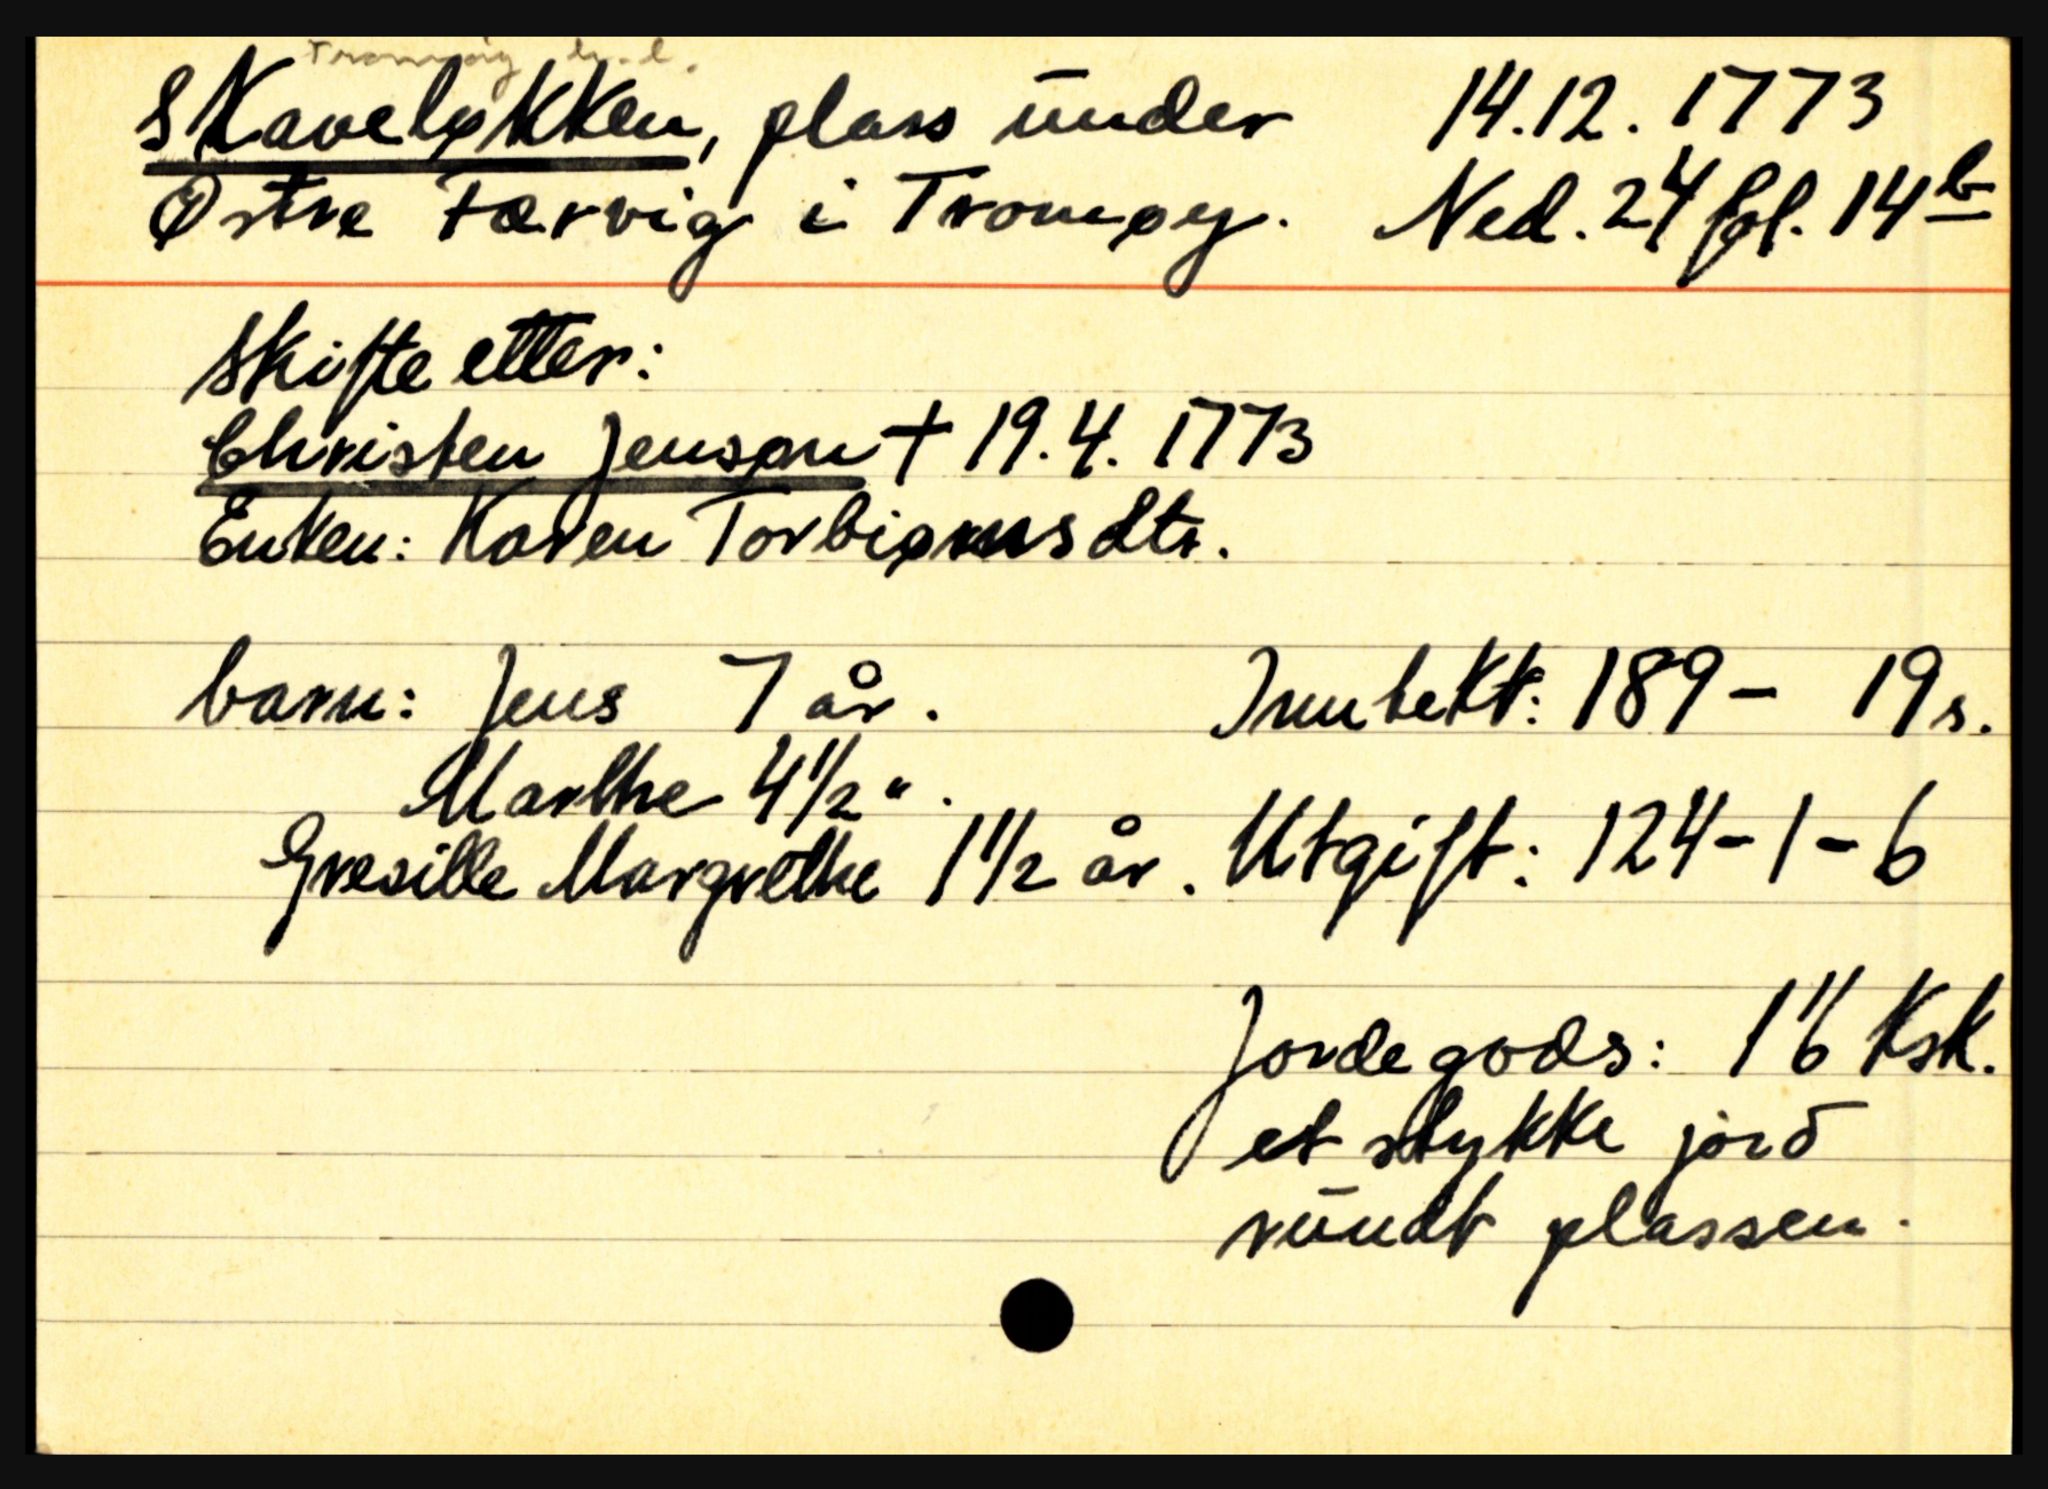 Tromøy
Skaveløkken, plass under 14.12.1773
Østre Færvig i Tromøy. Ned. 24 fol. 14b
Skifte etter:
Christen Jensøn † 19.4.1773
Enken: Karen Torbiørnsdtr.
barn: Jens 7 år. Innbekt: 189 - 19 s.
Marthe 4 1/2 " .
Gresille Margrethe 1 1/2 år. Utgift: 124 - 1 - 6
Jordegods: 1 1/6 Ksk.
et stykke jord
rundt plassen.